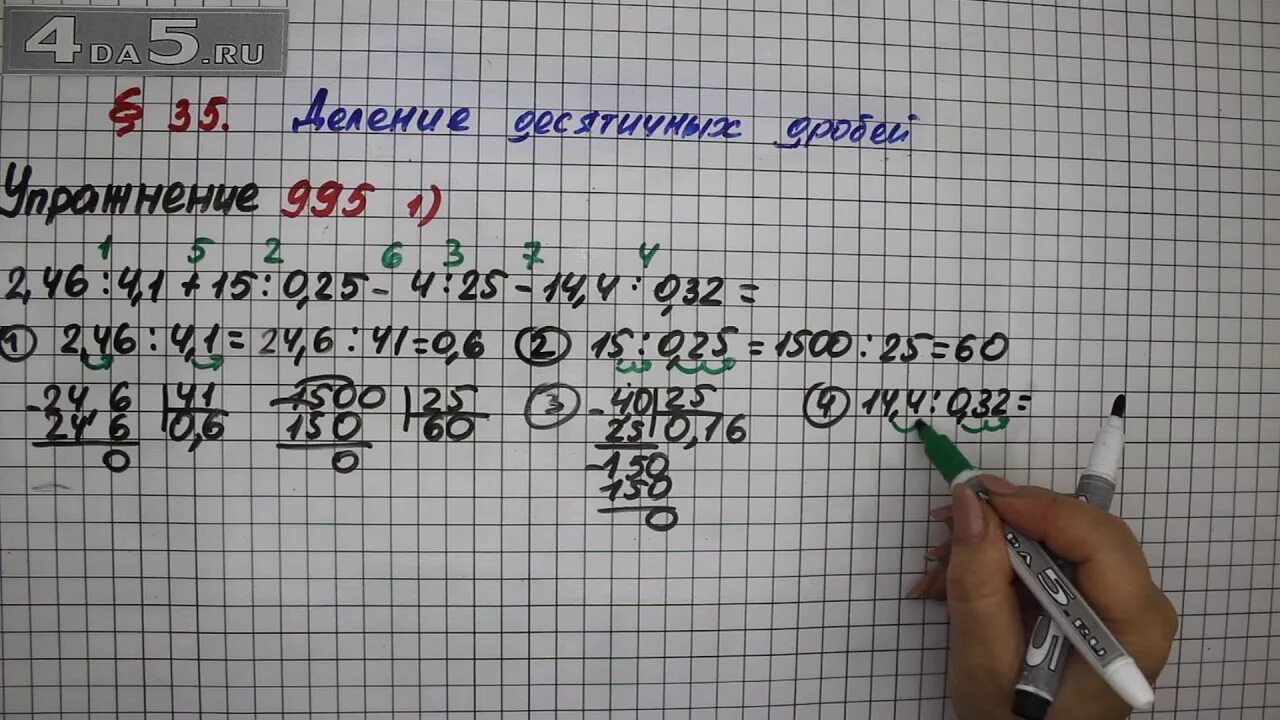 4DA5.RU
§ 35. Деление десятичных дробей
Упражнение 995 1)
1 5 2 6 3 7 4
2,46 : 4,1 + 15 : 0,25 - 4 : 25 - 14,4 : 0,32 =
① 2,46 : 4,1 = 24,6 : 41 = 0,6 ② 15 : 0,25 = 1500 : 25 = 60
-24 6 | 41 -1500 | 25 ③ -40 | 25 ④ 14,4 : 0,32 =
24 6 | 0,6 150 | 60 25 | 0,16
0 0 -150
150
0
DA5.RU
5